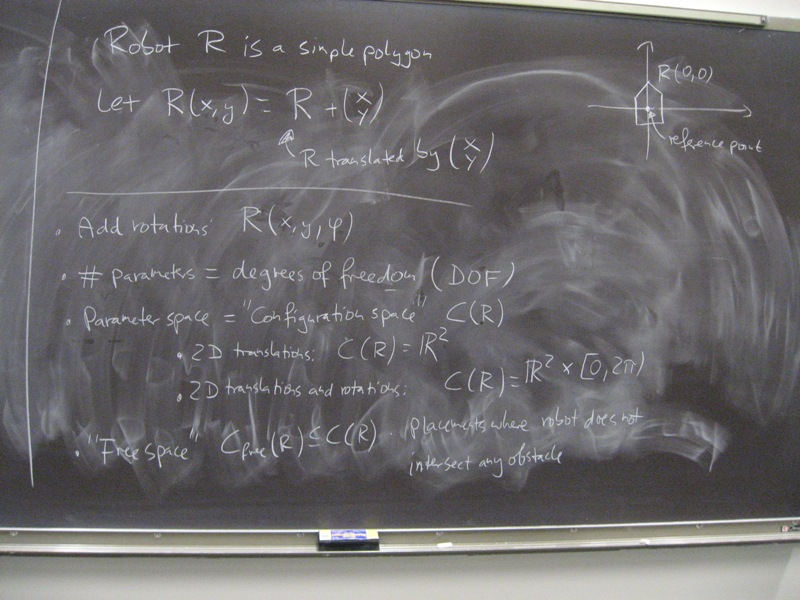 Robot R is a simple polygon
Let R(x,y) = R + (x y)
R translated by (x y)
R(0,0)
reference point
• Add rotations R(x,y,φ)
• # parameters = degrees of freedom (DOF)
• Parameter space = "Configuration space" C(R)
• 2D translations: C(R) = ℝ²
• 2D translations and rotations: C(R) = ℝ² × [0, 2π)
• "Free space" C_free(R) ⊆ C(R) . placements where robot does not
intersect any obstacle